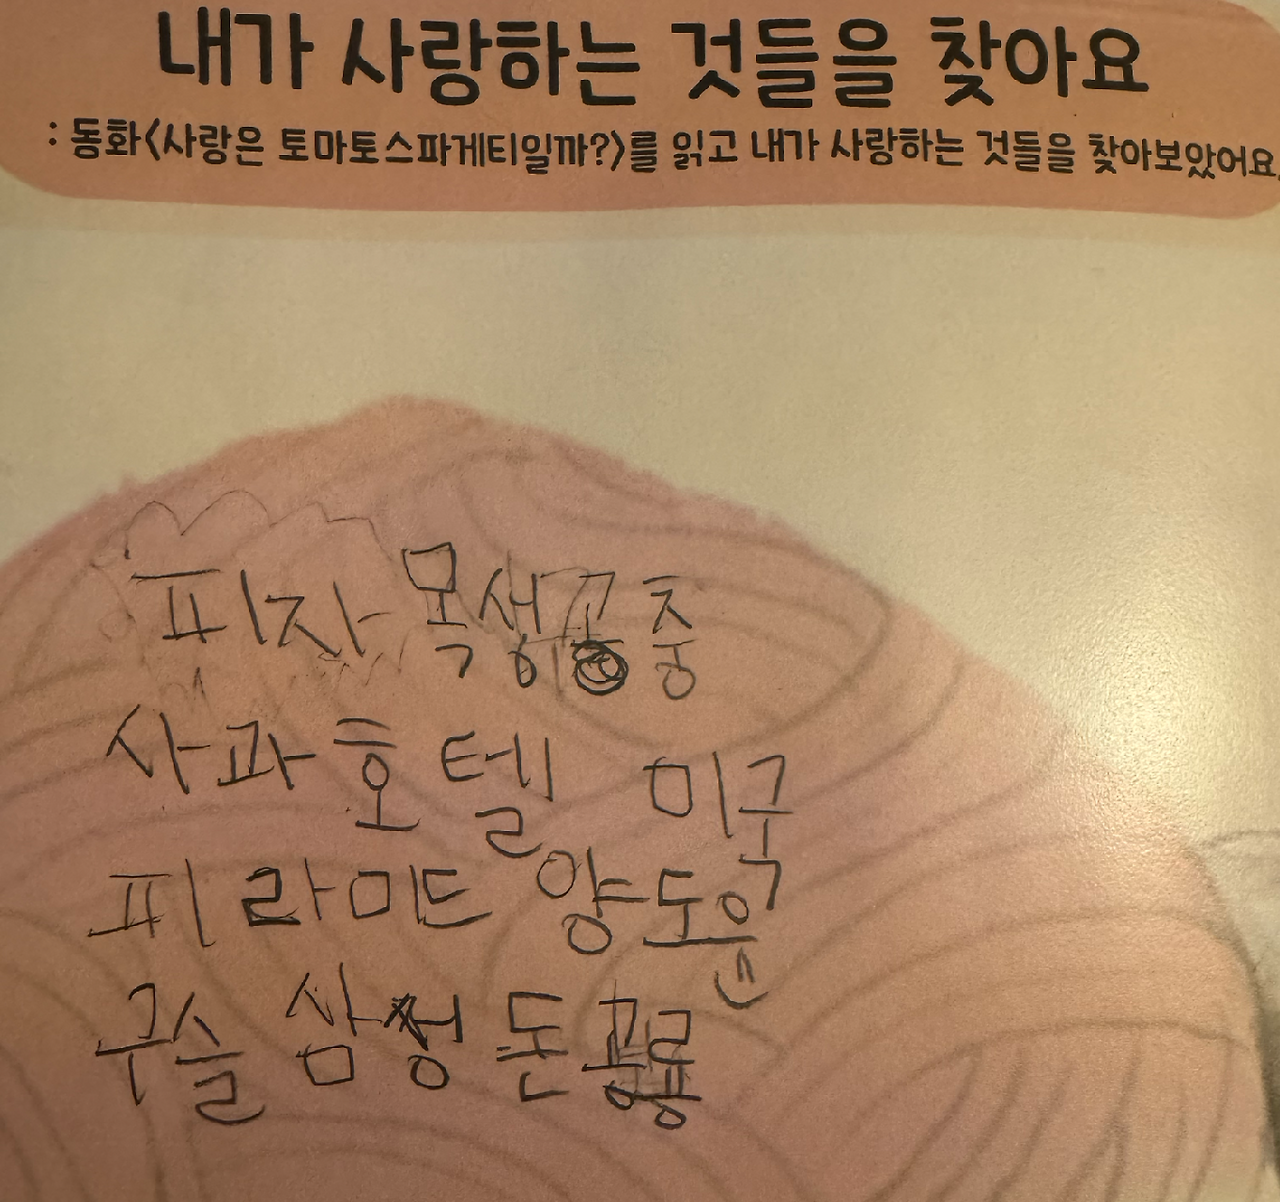 내가 사랑하는 것들을 찾아요
: 동화<사랑은 토마토스파게티일까?>를 읽고 내가 사랑하는 것들을 찾아보았어요.
피자 목생공중
사과 호텔 미국
피라미드 양도
구슬 삼성 돈 공룡